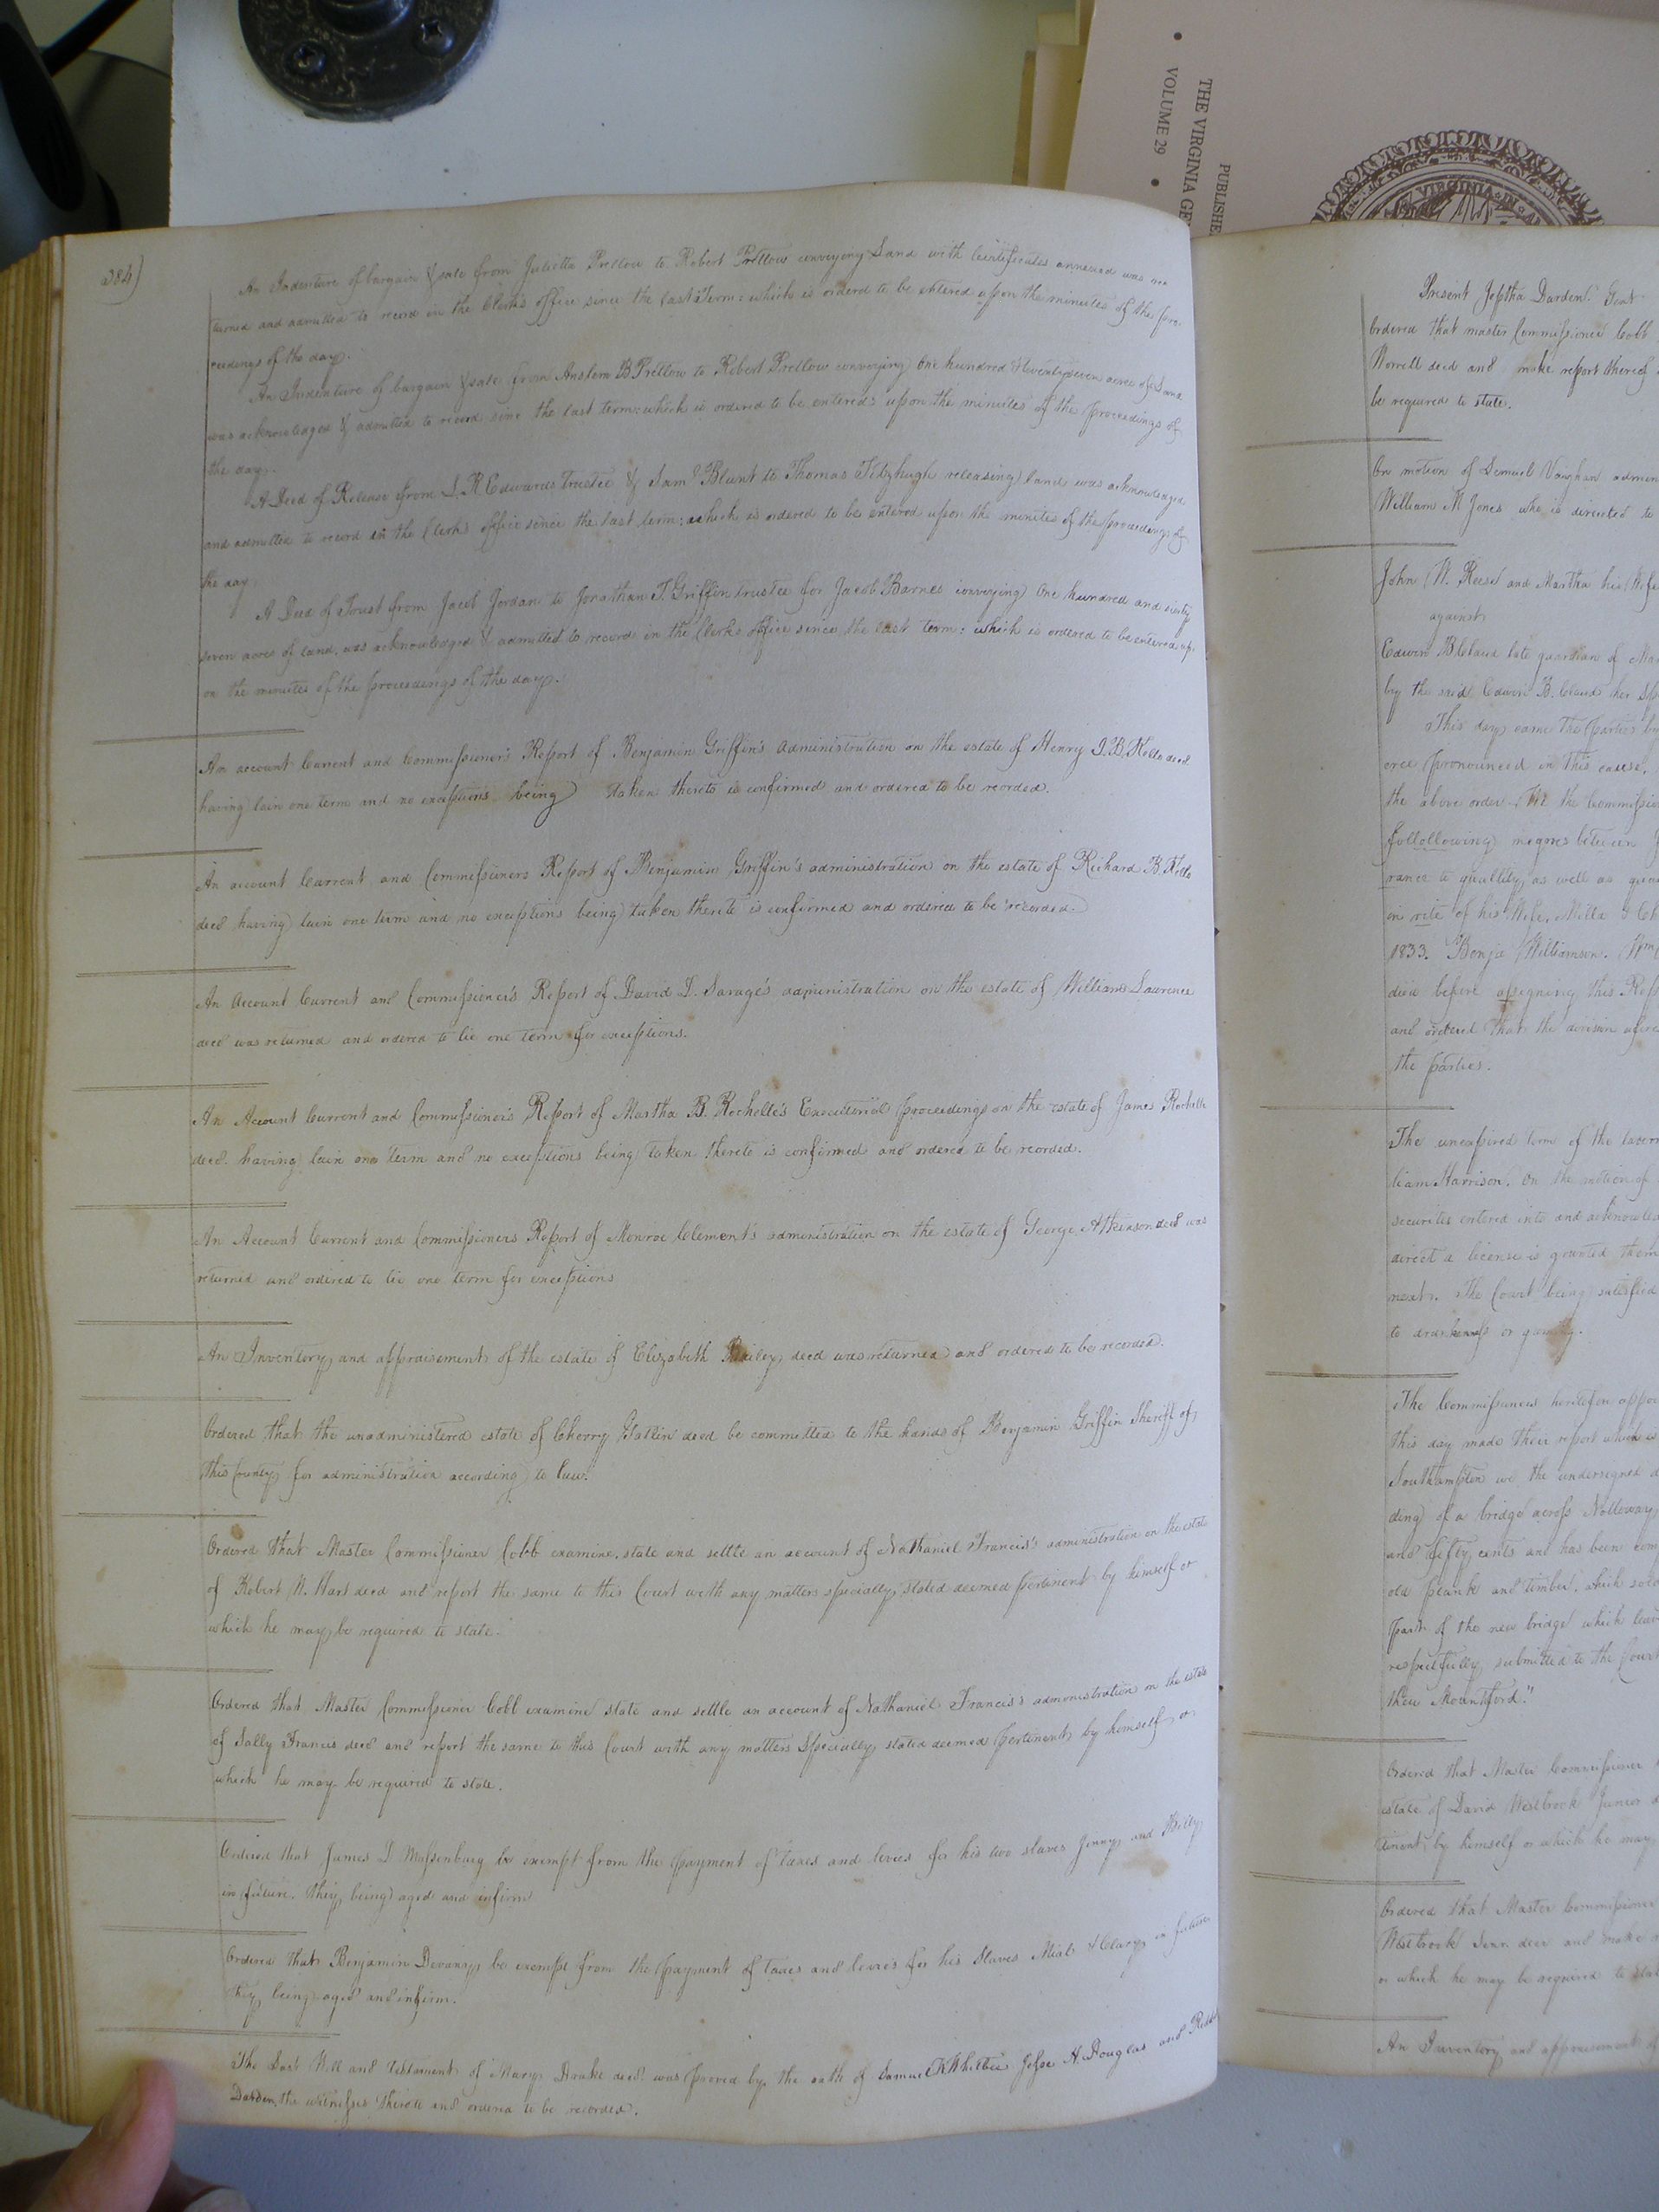 THE VIRGINIA GE
VOLUME 29
PUBLISHE
VIRGINIA
384)
An Indenture of bargain & sale from Julietta Pretlow to Robert Pretlow conveying Land with Certificates annexed was re
turned and admitted to record in the Clerk's office since the last Term: which is ordered to be entered upon the minutes of the pro-
ceedings of the day.
An Indenture of bargain & sale from Anslem B Pretlow to Robert Pretlow conveying One hundred & twenty seven acres of Land
was acknowledged & admitted to record since the last term: which is ordered to be entered upon the minutes of the proceedings of
the day.
A Deed of Release from L. R Edwards Trustee & Saml Blunt to Thomas Fitzhugh releasing land was acknowledged
and admitted to record in the Clerk's office since the last term: which is ordered to be entered upon the minutes of the proceedings of
the day
A Deed of Trust from Jacob Jordan to Jonathan T. Griffin trustee for Jacob Barnes conveying One hundred and sixty
seven acres of land, was acknowledged & admitted to record in the Clerks office since the last term: which is ordered to be entered up-
on the minutes of the proceedings of the day.
An account Current and Commissioner's Report of Benjamin Griffin's administration on the estate of Henry decd
having lain one term and no exceptions being taken thereto is confirmed and ordered to be recorded.
An account Current and Commissioners Report of Benjamin Griffin's administration on the estate of Richard B.
decd having lain one term and no exceptions being taken thereto is confirmed and ordered to be recorded.
An Account Current and Commissioner's Report of David D. Savage's administration on the estate of William Lawrence
decd was returned and ordered to lie one term for exceptions.
An Account Current and Commissioner's Report of Martha B. Rochelle's Executorial proceedings on the estate of James Rochelle
decd. having lain one term and no exceptions being taken thereto is confirmed and ordered to be recorded.
An Account Current and Commissioners Report of Monroe Clement's administration on the estate of George Atkinson decd was
returned and ordered to lie one term for exceptions
An Inventory and appraisement of the estate of Elizabeth Bailey decd was returned and ordered to be recorded.
Ordered that the unadministered estate of Cherry Gatlin decd be committed to the hands of Benjamin Griffin Sheriff of
this County for administration according to law.
Ordered that Master Commissioner Cobb examine, state and settle an account of Nathaniel Francis's administration on the estate
of Robert N. Hart decd and report the same to this Court with any matters specially stated deemed pertinent by himself or
which he may be required to state.
Ordered that Master Commissioner Cobb examine state and settle an account of Nathaniel Francis's administration on the estate
of Sally Francis decd and report the same to this Court with any matters Specially stated deemed pertinent by himself or
which he may be required to state.
Ordered that James D Massenburg be exempt from the payment of taxes and levies for his two slaves Jenny and Billy
in future. they being aged and infirm
Ordered that Benjamin Devany be exempt from the payment of taxes and levies for his Slaves & Clary in future
they being aged and infirm.
The Last Will and Testament of Mary Drake decd was proved by the oath of Samuel Jesse H. Douglas and
Darden, the witnesses thereto and ordered to be recorded.
Present Jeptha Darden. Gent
Ordered that master Commissioner Cobb
Worrell decd and make report thereof
be required to state.
On motion of Lemuel Vaughan admin
William M Jones who is directed to
John W. Reese and Martha his Wife
against
Edwin B Claud late guardian of Ma
by the said Edwin B. Claud her
This day came the parties by
oree pronounced in this cause.
the above order. We the Commissio
follollowing negroes between
rance to quallity, as well as
in rite of his Wife, Milla &
1833. Benja Williamson. Wm
died before assigning this Rep
and ordered that the division
the parties.
The unexpired term of the tavern
liam Harrison. On the motion of
securities entered into and acknowle
direct a license is granted them
next. The Court being satisfied
to drunkenness or gaming.
The Commissioners heretofore appoi
this day made their report which is
Southampton we the undersigned
ding of a bridge across Nottoway
and fifty cents and has been com
old plank and timber, which sold
part of the new bridge which
respectfully submitted to the Court
thew Mountford."
Ordered that Master Commissioner
estate of David Westbrook Junior d
tinent by himself or which he may
Ordered that Master Commissioner
Westbrook Senr. decd and make
or which he may be required to stat
An Inventory and appraisement of